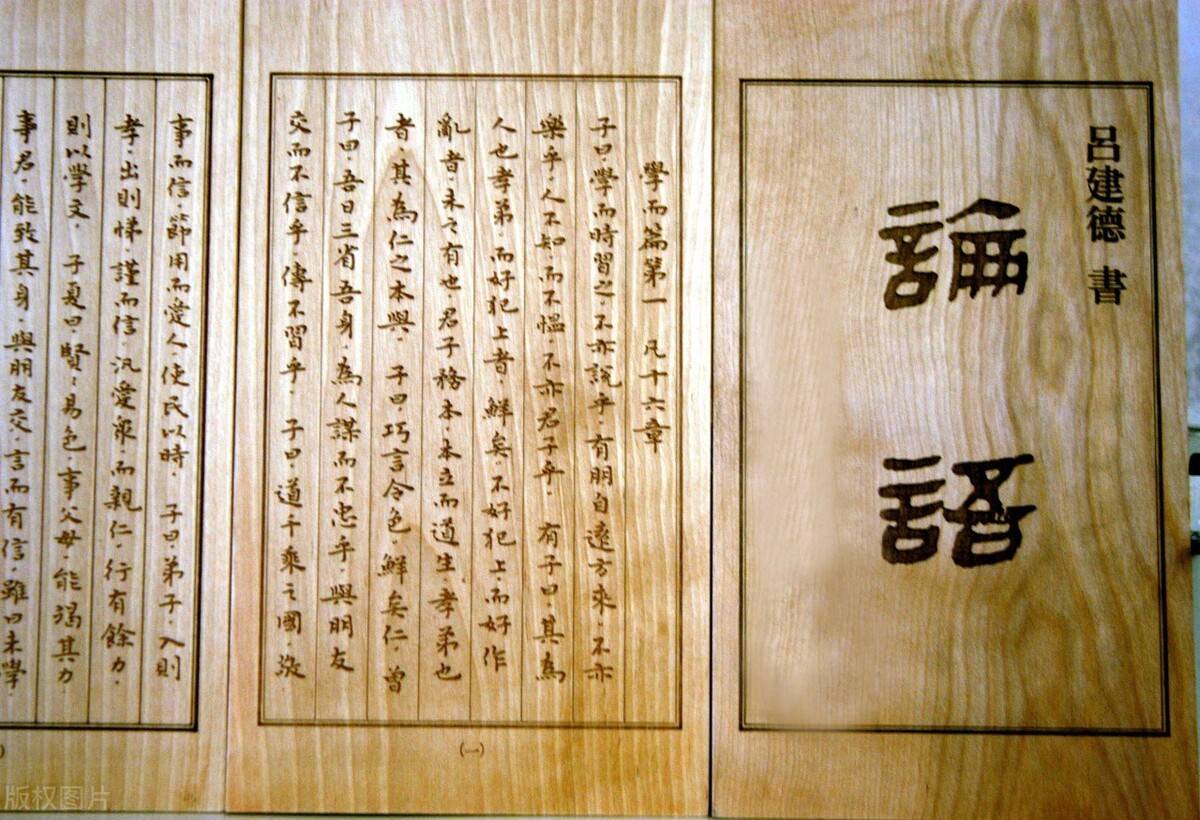 呂建德 書
論語
學而篇第一 凡十六章
子曰.學而時習之.不亦說乎.有朋自遠方來.不亦
樂乎.人不知.而不慍.不亦君子乎. 有子曰.其為
人也孝弟.而好犯上者.鮮矣.不好犯上.而好作
亂者.未之有也.君子務本.本立而道生.孝弟也
者.其為仁之本與. 子曰.巧言令色.鮮矣仁.曾
子曰.吾日三省吾身.為人謀而不忠乎.與朋友
交而不信乎.傳不習乎. 子曰.道千乘之國.敬
(一)
事而信.節用而愛人.使民以時. 子曰.弟子.入則
孝.出則悌.謹而信.汎愛眾.而親仁.行有餘力.
則以學文. 子夏曰.賢〻易色.事父母.能竭其力.
事君.能致其身.與朋友交.言而有信.雖曰未學
版权图片